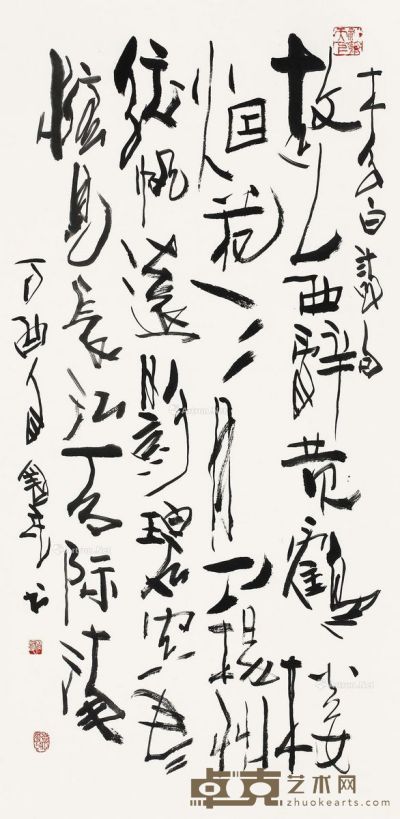 李白詩句
故人西辭黄鶴樓
烟花三月下揚州
孤帆遠影碧空盡
惟見長江天際流
丁酉 書
卓克艺术网
zhuokearts.com